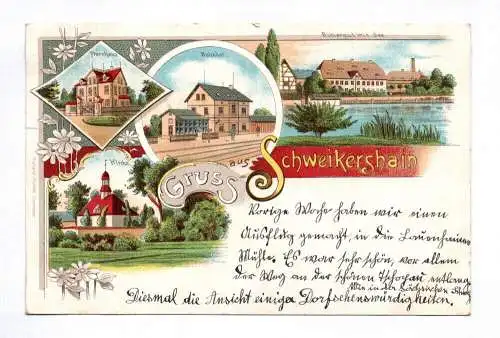 Pfarrhaus
Bahnhof
Rittergut mit See
Kirche
Gruss aus Schweikershain
Vorige Woche haben wir einen
Ausflug gemacht, in die Lauenhainer
Mühle. Es war sehr schön, vor allem
der Weg an der schönen Tschopau entlang.
Wie in der Sächsischen
Diesmal die Ansicht einiger Dorfsehenswürdigkeiten.